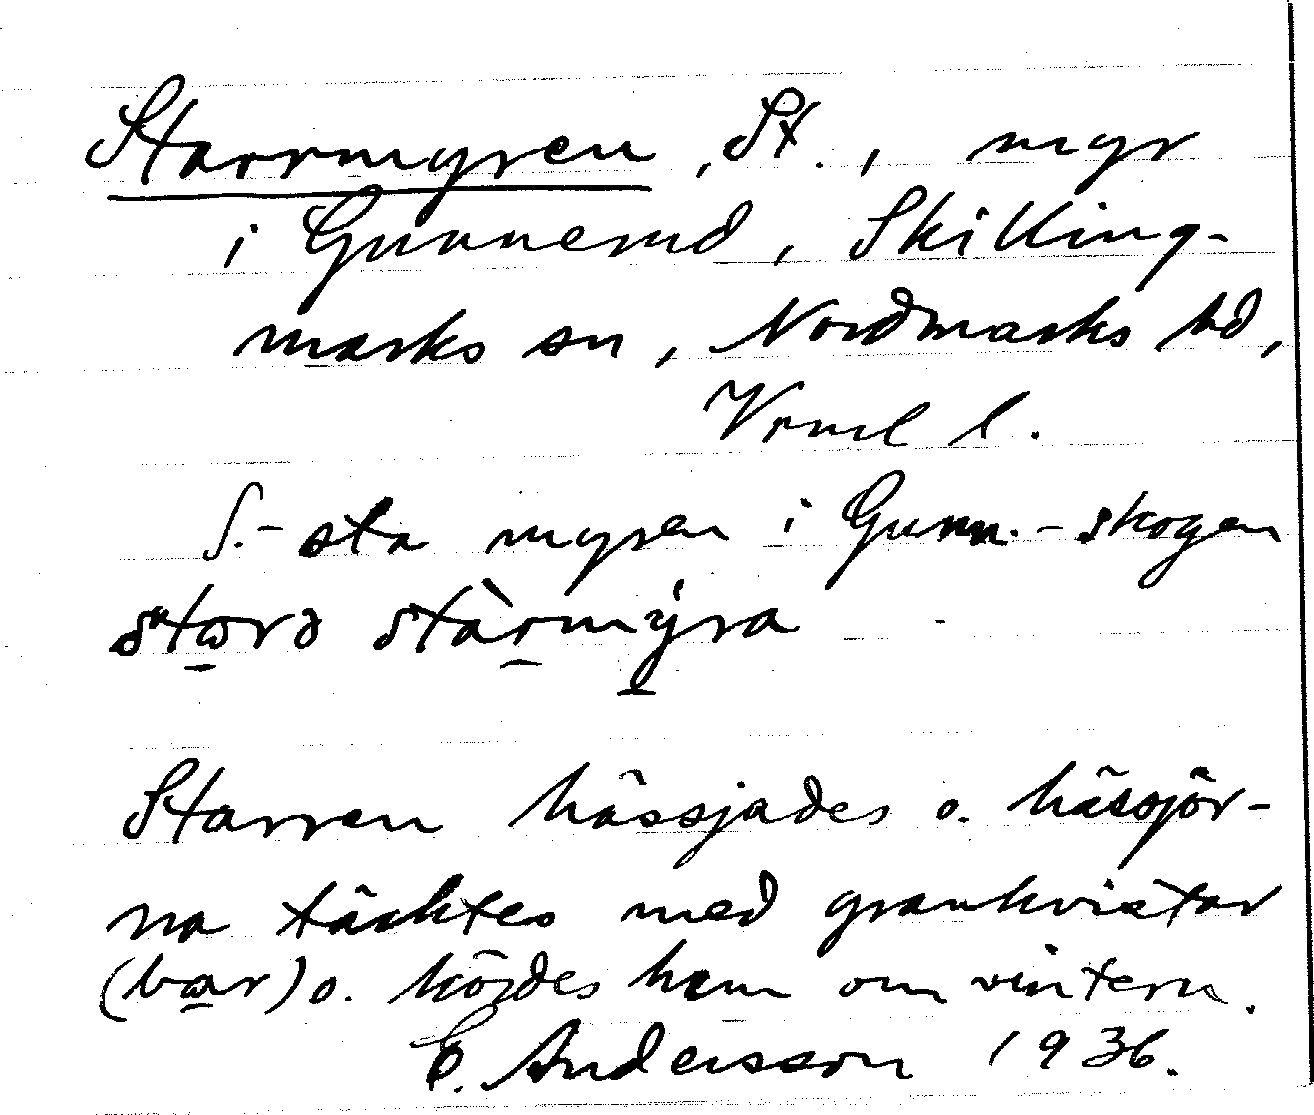 Starrmyren, St., myr
i Gunnerud, Skilling-
marks sn, Nordmarks hd,
Vrml l.
S.-sta myren i Gunn.-skogen
starmyra
Starren hässjades o. hässjor-
na täcktes med grankvistar
(bar) o. kördes hem om vintern.
E. Andersson 1936.